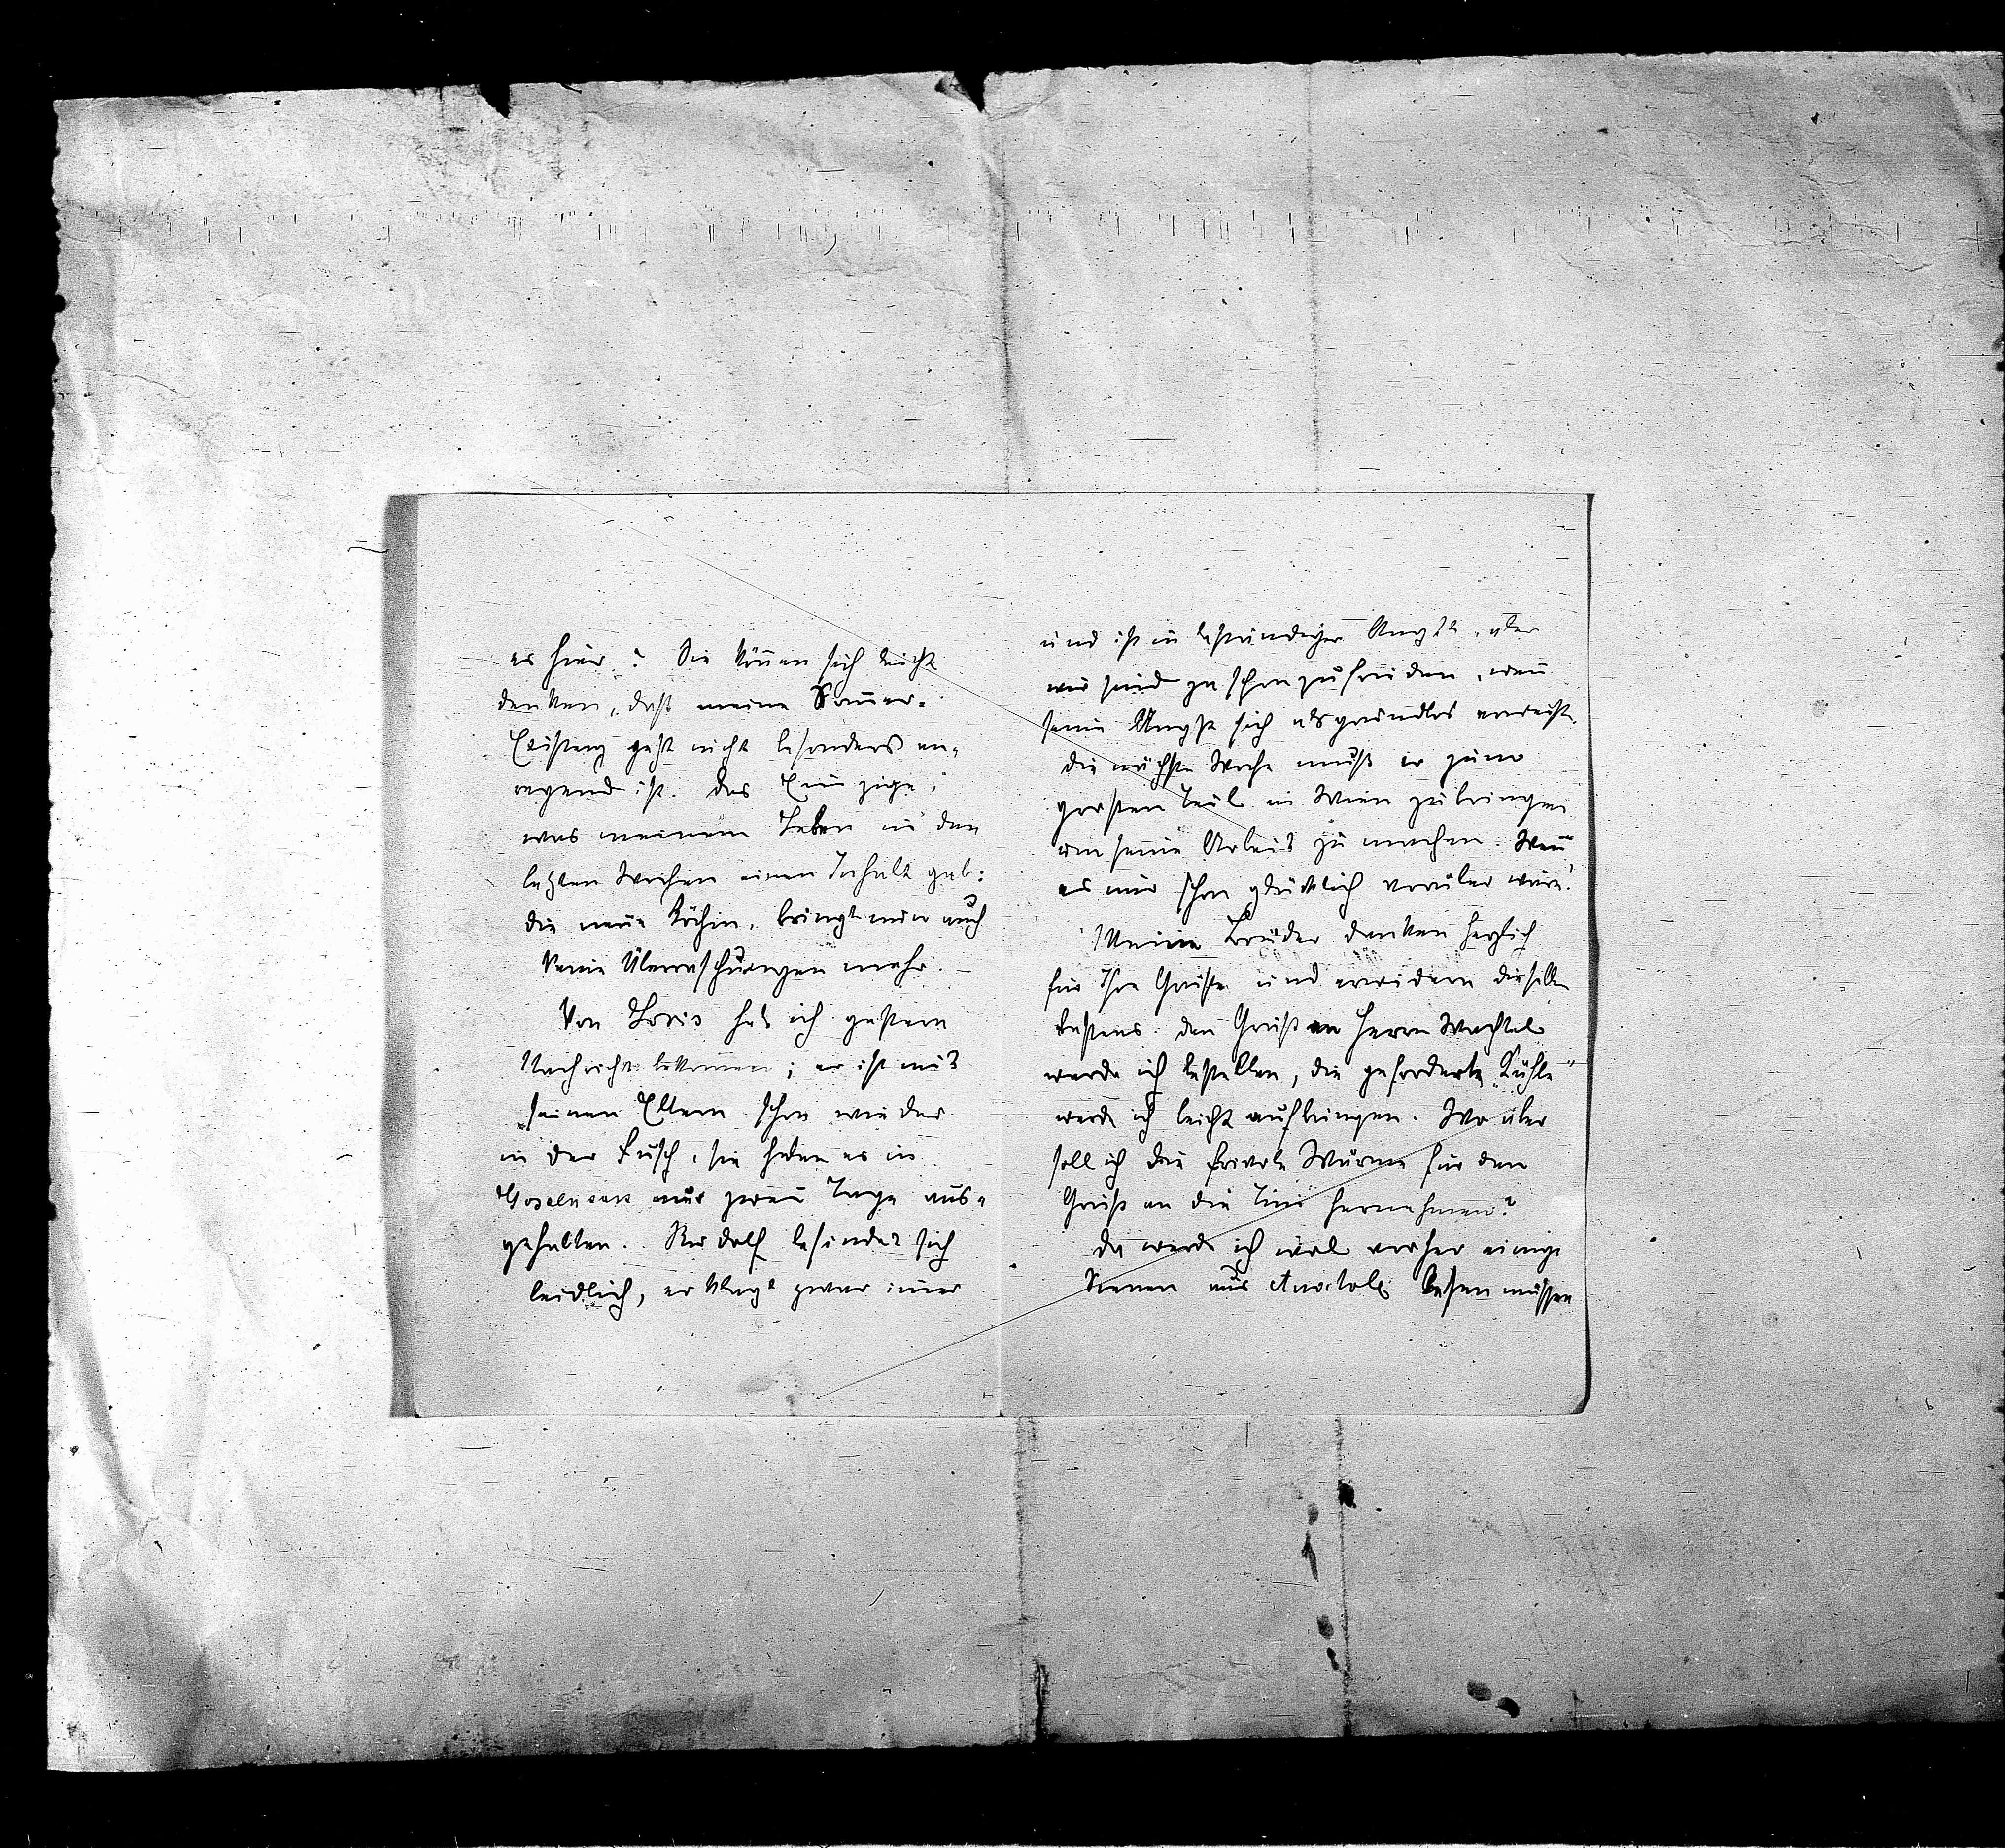 es hier? Sie können sich leicht
denken, daß meine Sommer-
Existenz jetzt nicht besonders an-
regend ist. Das Einzige,
was meinem Leben in den
letzten Wochen einen Inhalt gab:
die neue Köchin, bringt mir auch
keine Überraschungen mehr. –
Von Loris hab ich gestern
Nachricht bekommen; er ist mit
seinen Eltern schon wieder
in der Fusch, sie haben es in
nur zwei Tage aus-
gehalten. Rudolf befindet sich
leidlich, er klagt zwar immer
und ist in beständiger Angst, aber
wir sind ja schon zufrieden, wenn
seine Angst sich als grundlos erweist.
Die nächste Woche muß er zum
grössten Teil in Wien zubringen
um seine Arbeit zu machen. Wenn
es nur schon glücklich vorüber wäre!
Meine Brüder danken herzlich
für Ihre Grüße und erwidern dieselben
bestens. Den Gruß an Herrn Wachtel
werde ich bestellen, die geforderte „Kühle“
werde ich leicht aufbringen. Wo aber
soll ich die frivole Wärme für den
Gruß an die hernehmen?
Da werde ich wol vorher einige
Scenen aus Anatol lesen müssen